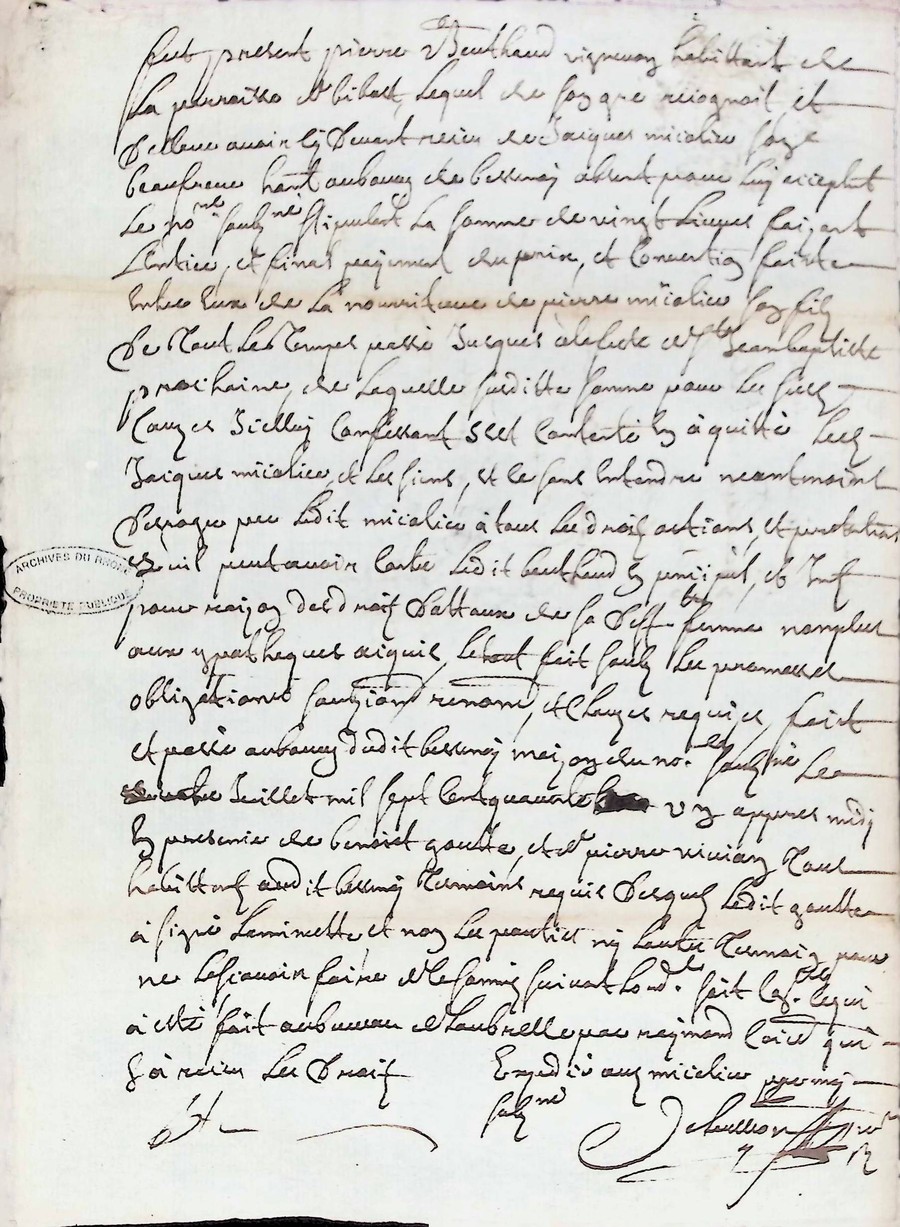 fut present pierre Beuthaud vigneron habittant de
La parroisse de bibost, Lequel de son gre recognoit et
Declare avoir cy Devant receu de Jacques micolier son
beaufrere hant au bourg de bessenay absent pour luy acceptant
Le no.re soubs.né stipulant La somme de vingt Livres faizant
Lentier, et final payement du prix, et Convention faitte
Entre Eux de La nourriture de pierre micolier son fils
De Tout Le Temps passé Jusques à la feste de St Jean baptiste
prochaine, de Laquelle susditte somme pour les susd.
Cauzes Icelluy Confessant s'est Contenté En à quitté Led.
Jacques micolier, et Les siens, et ce sans Entendre neantmoins
Deroger par Ledit micolier à tous Les droits actions, et pretentions
qu'il peut avoir Contre Ledit beuthaud En principal, et Int.
pour raizon des droits Dottaux de sa Deff.te femme non plus
aux ypotheques acquis, Le tout fait soubs Les promesses
obligations soubmissions renons, et Clauzes requises, fait
et passé au bourg dudit bessenay maizon du no.re soubs.né Le
Juillet mil sept Cent quarante un apprès midy
En presence de benoist goutte, et de pierre vivian Tous
habittants audit bessenay Temoins requis Desquels Ledit goutte
à signé La minutte, et non Les parties ny Lautre Temoin pour
ne Le scavoir faire de ce sommés suivant Lord.ce soit Con.lée ce qui
à esté fait au bureau de Laubrelle par reymond Com.is qui
En à receu Les Droits
Expedié aud. micolier par moy
soubs.né
ARCHIVES DU RHONE
PROPRIÉTÉ PUBLIQUE